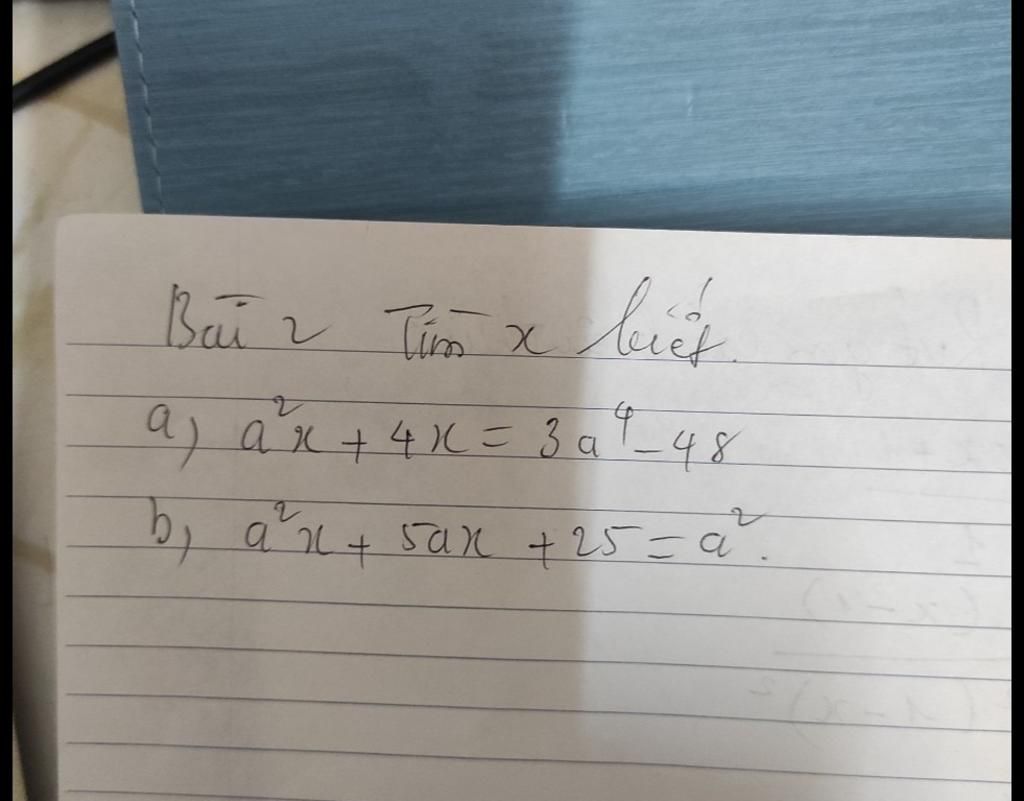 Bài 2 Tìm x biết.
a) a²x + 4x = 3a⁴ - 48
b) a²x + 5ax + 25 = a².